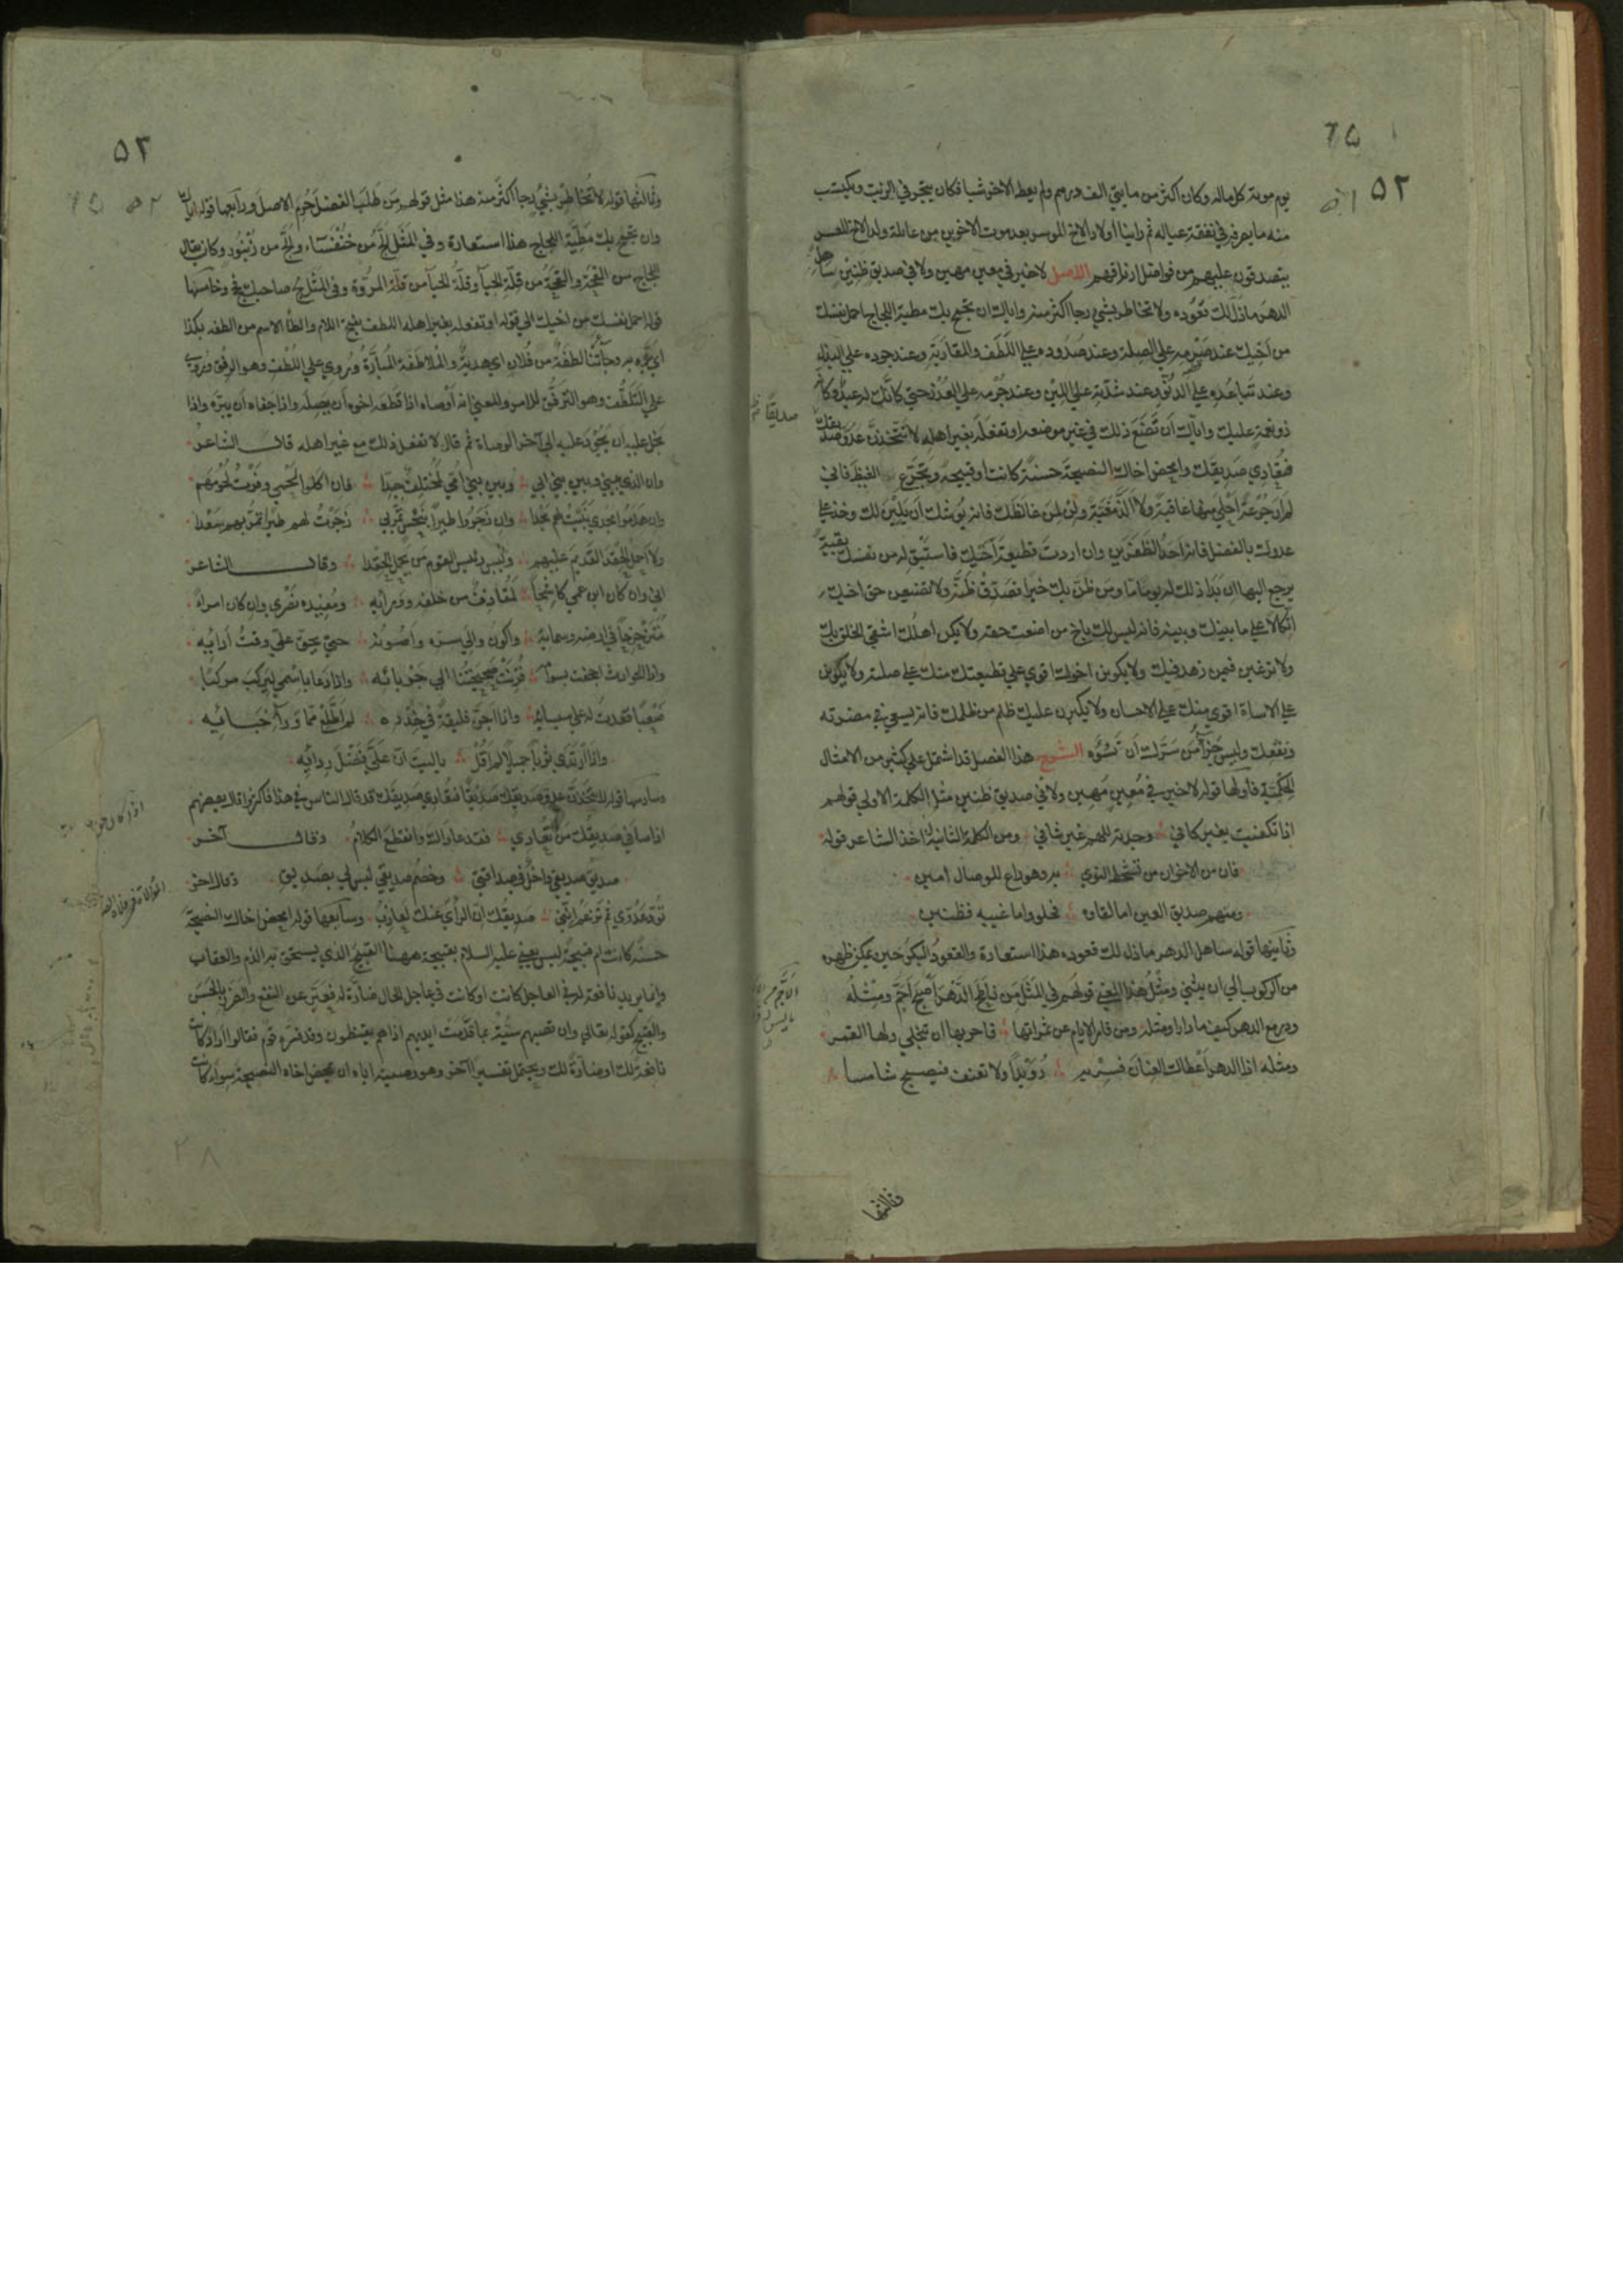 ٥٢
يوم موته كل ماله وكان اكثر من مايتي الف درهم ولم يعط الاخر شيا فكان يتجر في الزيت ويكتسب
منه ما يصرفه في نفقة عياله ثم راينا اولاد الاخ الموسر بعد موت الاخوين من عائلة ولد الاخ المعسر
يتصدقون عليهم من فواضل ارزاقهم الاصل لا خير في معين مهين ولا في صديق ظنين ساهل
الدهر ما ذل لك قعوده ولا تخاطر بشيء رجا اكثر منه واياك ان تجمح بك مطية اللجاج احمل نفسك
من اخيك عند صرمه على الصلة وعند صدوده على اللطف والمقاربة وعند جموده على البذل
وعند تباعده على الدنو وعند شدته على اللين وعند جرمه على العذر حتى كانك له عبد وكانه
ذو نعمة عليك واياك ان تضع ذلك في غير موضعه او تفعله بغير اهله لا تتخذن عدو صديقك
صديقا
فتعادي صديقك وامحض اخاك النصيحة حسنة كانت او قبيحة وتجرع الغيظ فاني
لم ار جرعة احلى منها عاقبة ولا الذ مغبة ولن لمن غالظك فانه يوشك ان يلين لك وخذ على
عدوك بالفضل فانه احد الظفرين وان اردت قطيعة اخيك فاستبق له من نفسك بقية
يرجع اليها ان بدا ذلك له يوما ما ومن ظن بك خيرا فصدق ظنه ولا تضيعن حق اخيك
اتكالا على ما بينك وبينه فانه ليس لك باخ من اضعت حقه ولا يكن اهلك اشقى الخلق بك
ولا ترغبن فيمن زهد فيك ولا يكونن اخوك اقوى على قطيعتك منك على صلته ولا يكونن
على الاساءة اقوى منك على الاحسان ولا يكبرن عليك ظلم من ظلمك فانه يسعى في مضرته
ونفعك وليس جزاء من سرك ان تسوءه الشرح هذا الفصل قد اشتمل على كثير من الامثال
الحكمية فاولها قوله لا خير في معين مهين ولا في صديق ظنين مثل الكلمة الاولى قولهم
اذا تكفيت بغير كافي وجدته للهم غير شافي ومن الكلمة الثانية اخذ الشاعر قوله
فان من الاخوان من شحط النوى به وهو داع للوصال امين
ومنهم صديق العين اما لقاوه فحلو واما غيبه فظنين
وثانيها قوله ساهل الدهر ما ذل لك قعوده هذا استعارة والقعود البكر حين يمكن ظهره
من الركوب الى ان يثني ومثل هذا المعنى قولهم في المثل من ناطح الدهر اصبح اجم ومثله
ودر مع الدهر كيفما دارا ومثله ومن قامر الايام عن ثمراتها فاحر بها ان تنجلي ولها القمر
ومثله اذا الدهر اعطاك العنان فسر به رويدا ولا تعنف فيصبح شامسا
وثالثها
٥٣
وثالثها قوله لا تخاطر بشيء رجا اكثر منه هذا مثل قولهم من طلب الفضل حرم الاصل ورابعها قوله اياك
وان تجمح بك مطية اللجاج هذا استعارة وفي المثل الج من خنفساء والج من زنبور وكان يقال
اللجاج من القحة والقحة من قلة الحيا وقلة الحيا من قلة المروة وفي المثل لج صاحبك فحج وخامسها
قوله احمل نفسك من اخيك الى قوله او تفعله بغير اهله اللطف بفتح اللام والطا الاسم من الطفه بكذا
اي بره به وجاتنا لطفة من فلان اي هدية والملاطفة المبارة وروي على اللطف وهو الرفق
على التلطف وهو الترفق للامر والمعنى انه اوصاه اذا قطعه اخوه ان يصله واذا جفاه ان يبره واذا
بخل عليه ان يجود عليه الى اخر الوصاة ثم قال لا تفعل ذلك مع غير اهله قال الشاعر
وان الذي بيني وبين بني ابي وبين بني امي لمختلف جدا فان اكلوا لحمي وفرت لحومهم
وان هدموا مجدي بنيت لهم مجدا وان زجروا طيرا بنحس تمر بي زجرت لهم طيرا تمر بهم سعدا
ولا احمل الحقد القديم عليهم وليس رئيس القوم من يحمل الحقدا وقال الشاعر
اني وان كان ابن عمي كاشحا لمقاذف من خلفه وورائه ومفيده نصري وان كان امرا
متزحزحا في ارضه وسمائه واكون والي سره واصونه حتى يحق علي وقت ادائه
واذا الحوادث اجحفت بسوامه قرنت صحيحتنا الى جربائه واذا دعا باسمي ليركب مركبا
صعبا قعدت له على سيسائه واذا اجن فليقة في خدره لم اطلع مما وراء خبائه
واذا ارتدى ثوبا جميلا لم اقل يا ليت ان علي فضل ردائه
وسادسها قوله لا تتخذن عدو صديقك صديقا فتعادي صديقك قد قال الناس في هذا فاكثروا قال بعضهم
اذا صافى صديقك من تعادي فقد عاداك وانقطع الكلام وقال آخر
صديق صديقي داخل في صداقتي وخصم صديقي ليس لي بصديق وقال اخر
تود عدوي ثم تزعم انني صديقك ان الراي عنك لعازب وسابعها قوله وامحض اخاك النصيحة
حسنة كانت ام قبيحة ليس يعني عليه السلام بقبيحة ههنا القبيح الذي يستحق به الذم والعقاب
وانما يريد نافعة له في العاجل كانت او كانت في عاجل الحال ضارة له فعبر عن النفع والضرر بالحسن
والقبيح كقوله تعالى وان تصبهم سيئة بما قدمت ايديهم اذا هم يقنطون وقد فسره قوم فقالوا اراد كانت
نافعة لك او ضارة لك ويحتمل تفسيرا آخر وهو وصيته اياه ان يمحض اخاه النصيحة سواء كانت